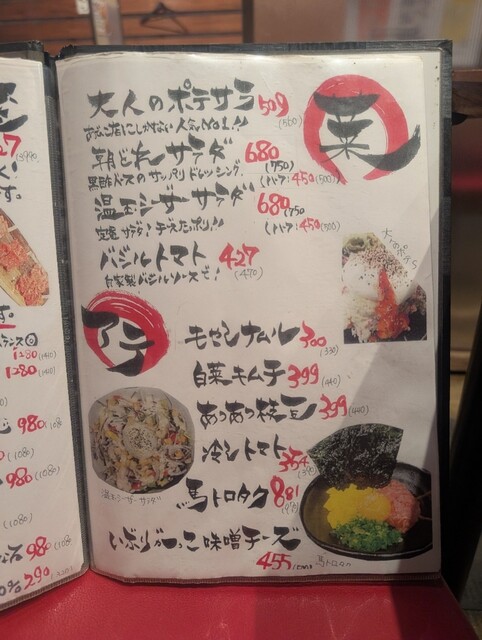 菜
大人のポテサラ 509 (560)
朝どれサラダ 680 (750)
黒酢ベースのサッパリドレッシング。 (ハーフ:450(500))
温玉シーザーサラダ 680 (750)
定番サラダ!チーズたっぷり!! (ハーフ:450(500))
バジルトマト 427 (470)
自家製バジルソースで!
大人のポテサラ
アテ
モヤシナムル 300 (330)
白菜キムチ 399 (440)
あつあつ枝豆 399 (440)
冷シトマト 354 (390)
馬トロタク 881 (970)
いぶりがっこ味噌チーズ
455
温玉シーザーサラダ
馬トロタク
1280 (1410)
1280 (1410)
980 (1080)
980 (1080)
(1080)
980 (1080)
290